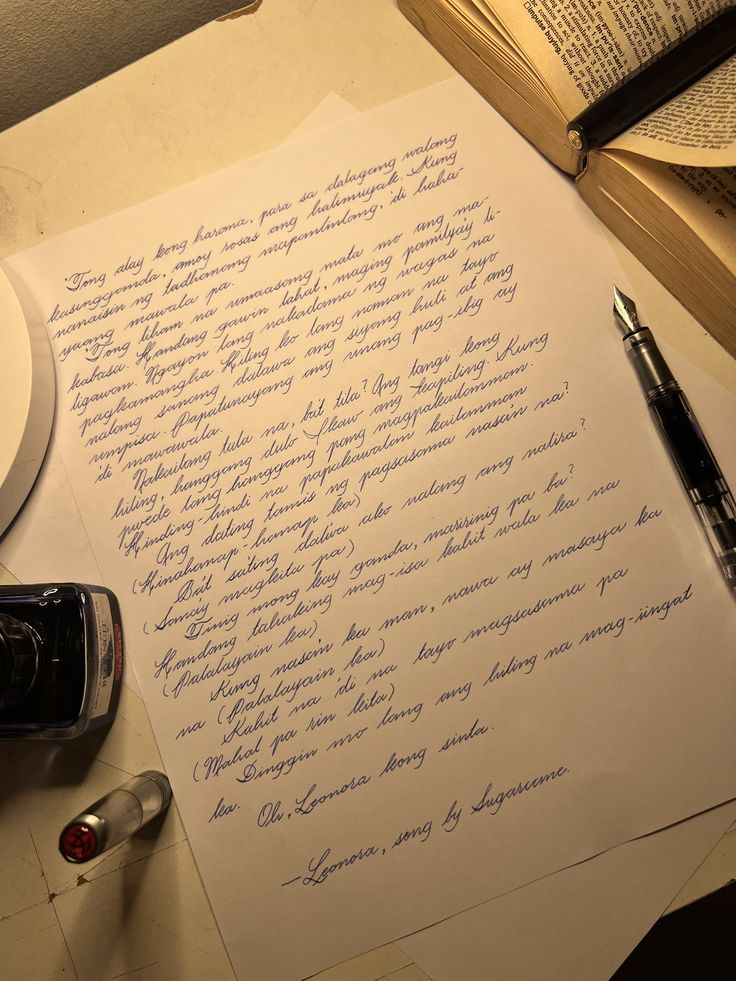 'Tong alay kong harana, para sa dalagang walang
kasingganda, amoy rosas ang halimuyak. Kung
nanaisin ng tadhanang mapanlinlang, 'di haha-
yaang mawala pa.
'Tong liham na umaasang mata mo ang ma-
kabasa. Handang gawin lahat, maging pamilya'y li-
ligawan. Ngayon lang nakadama ng wagas na
pagkamangha. Hiling ko lang naman na tayo
nalang sanang dalawa ang siyang huli at ang
umpisa. Papatunayang ang unang pag-ibig ay
'di mawawala.
Nakailang tula na, ba't tila? Ang tangi kong
hiling, hanggang dulo ikaw ang kapiling. Kung
pwede lang hanggang pang magpakailanman.
Hinding-hindi na papakawalan kailanman
Ang dating tamis ng pagsasama nasan na?
(Hinahanap-hanap ka)
Ba't sa'ting dalwa ako nalang ang natira?
(Sana'y magkita pa)
Tinig mong kay ganda, maririnig pa ba?
Handang tahaking mag-isa kahit wala ka na
(Palalayain ka)
Kung nasa'n ka man, nawa ay masaya ka
na (Palalayain ka)
Kahit na 'di na tayo magsasama pa
(Mahal pa rin kita)
Dinggin mo lang ang hiling na mag-iingat
ka.
Oh, Leonora kong sinta.
—Leonora, song by Sugarcane.
impulse buying, buying of goods